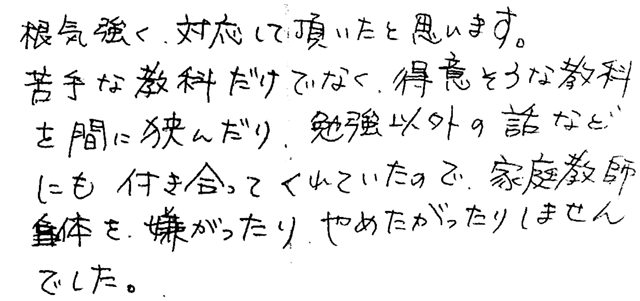 根気強く、対応して頂いたと思います。
苦手な教科だけでなく、得意そうな教科
を間に挟んだり、勉強以外の話など
にも付き合ってくれていたので、家庭教師
自体を、嫌がったり、やめたがったりしません
でした。